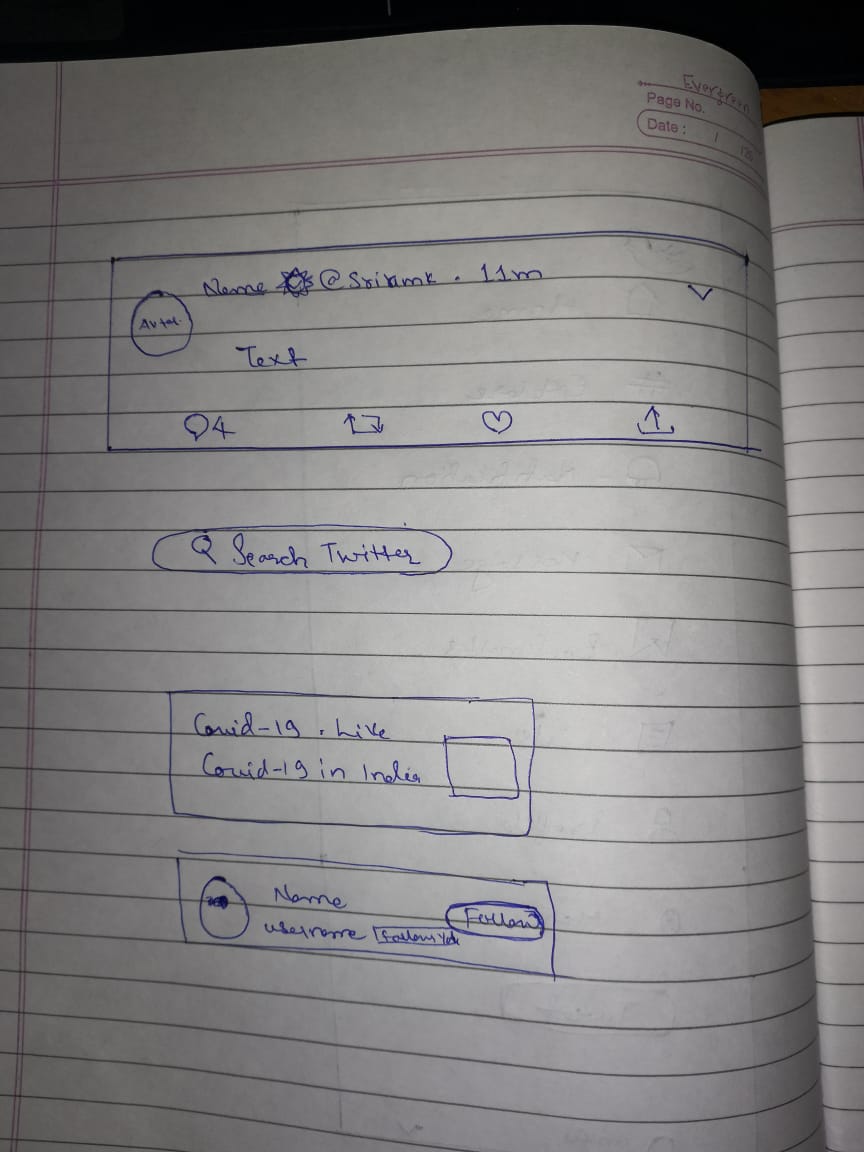 Evergreen
Page No.
Date : / /20
Name @Srikmk . 11m
Text
4
Search Twitter
Covid-19 . Live
Covid-19 in India
Name
username Follows You
Follow